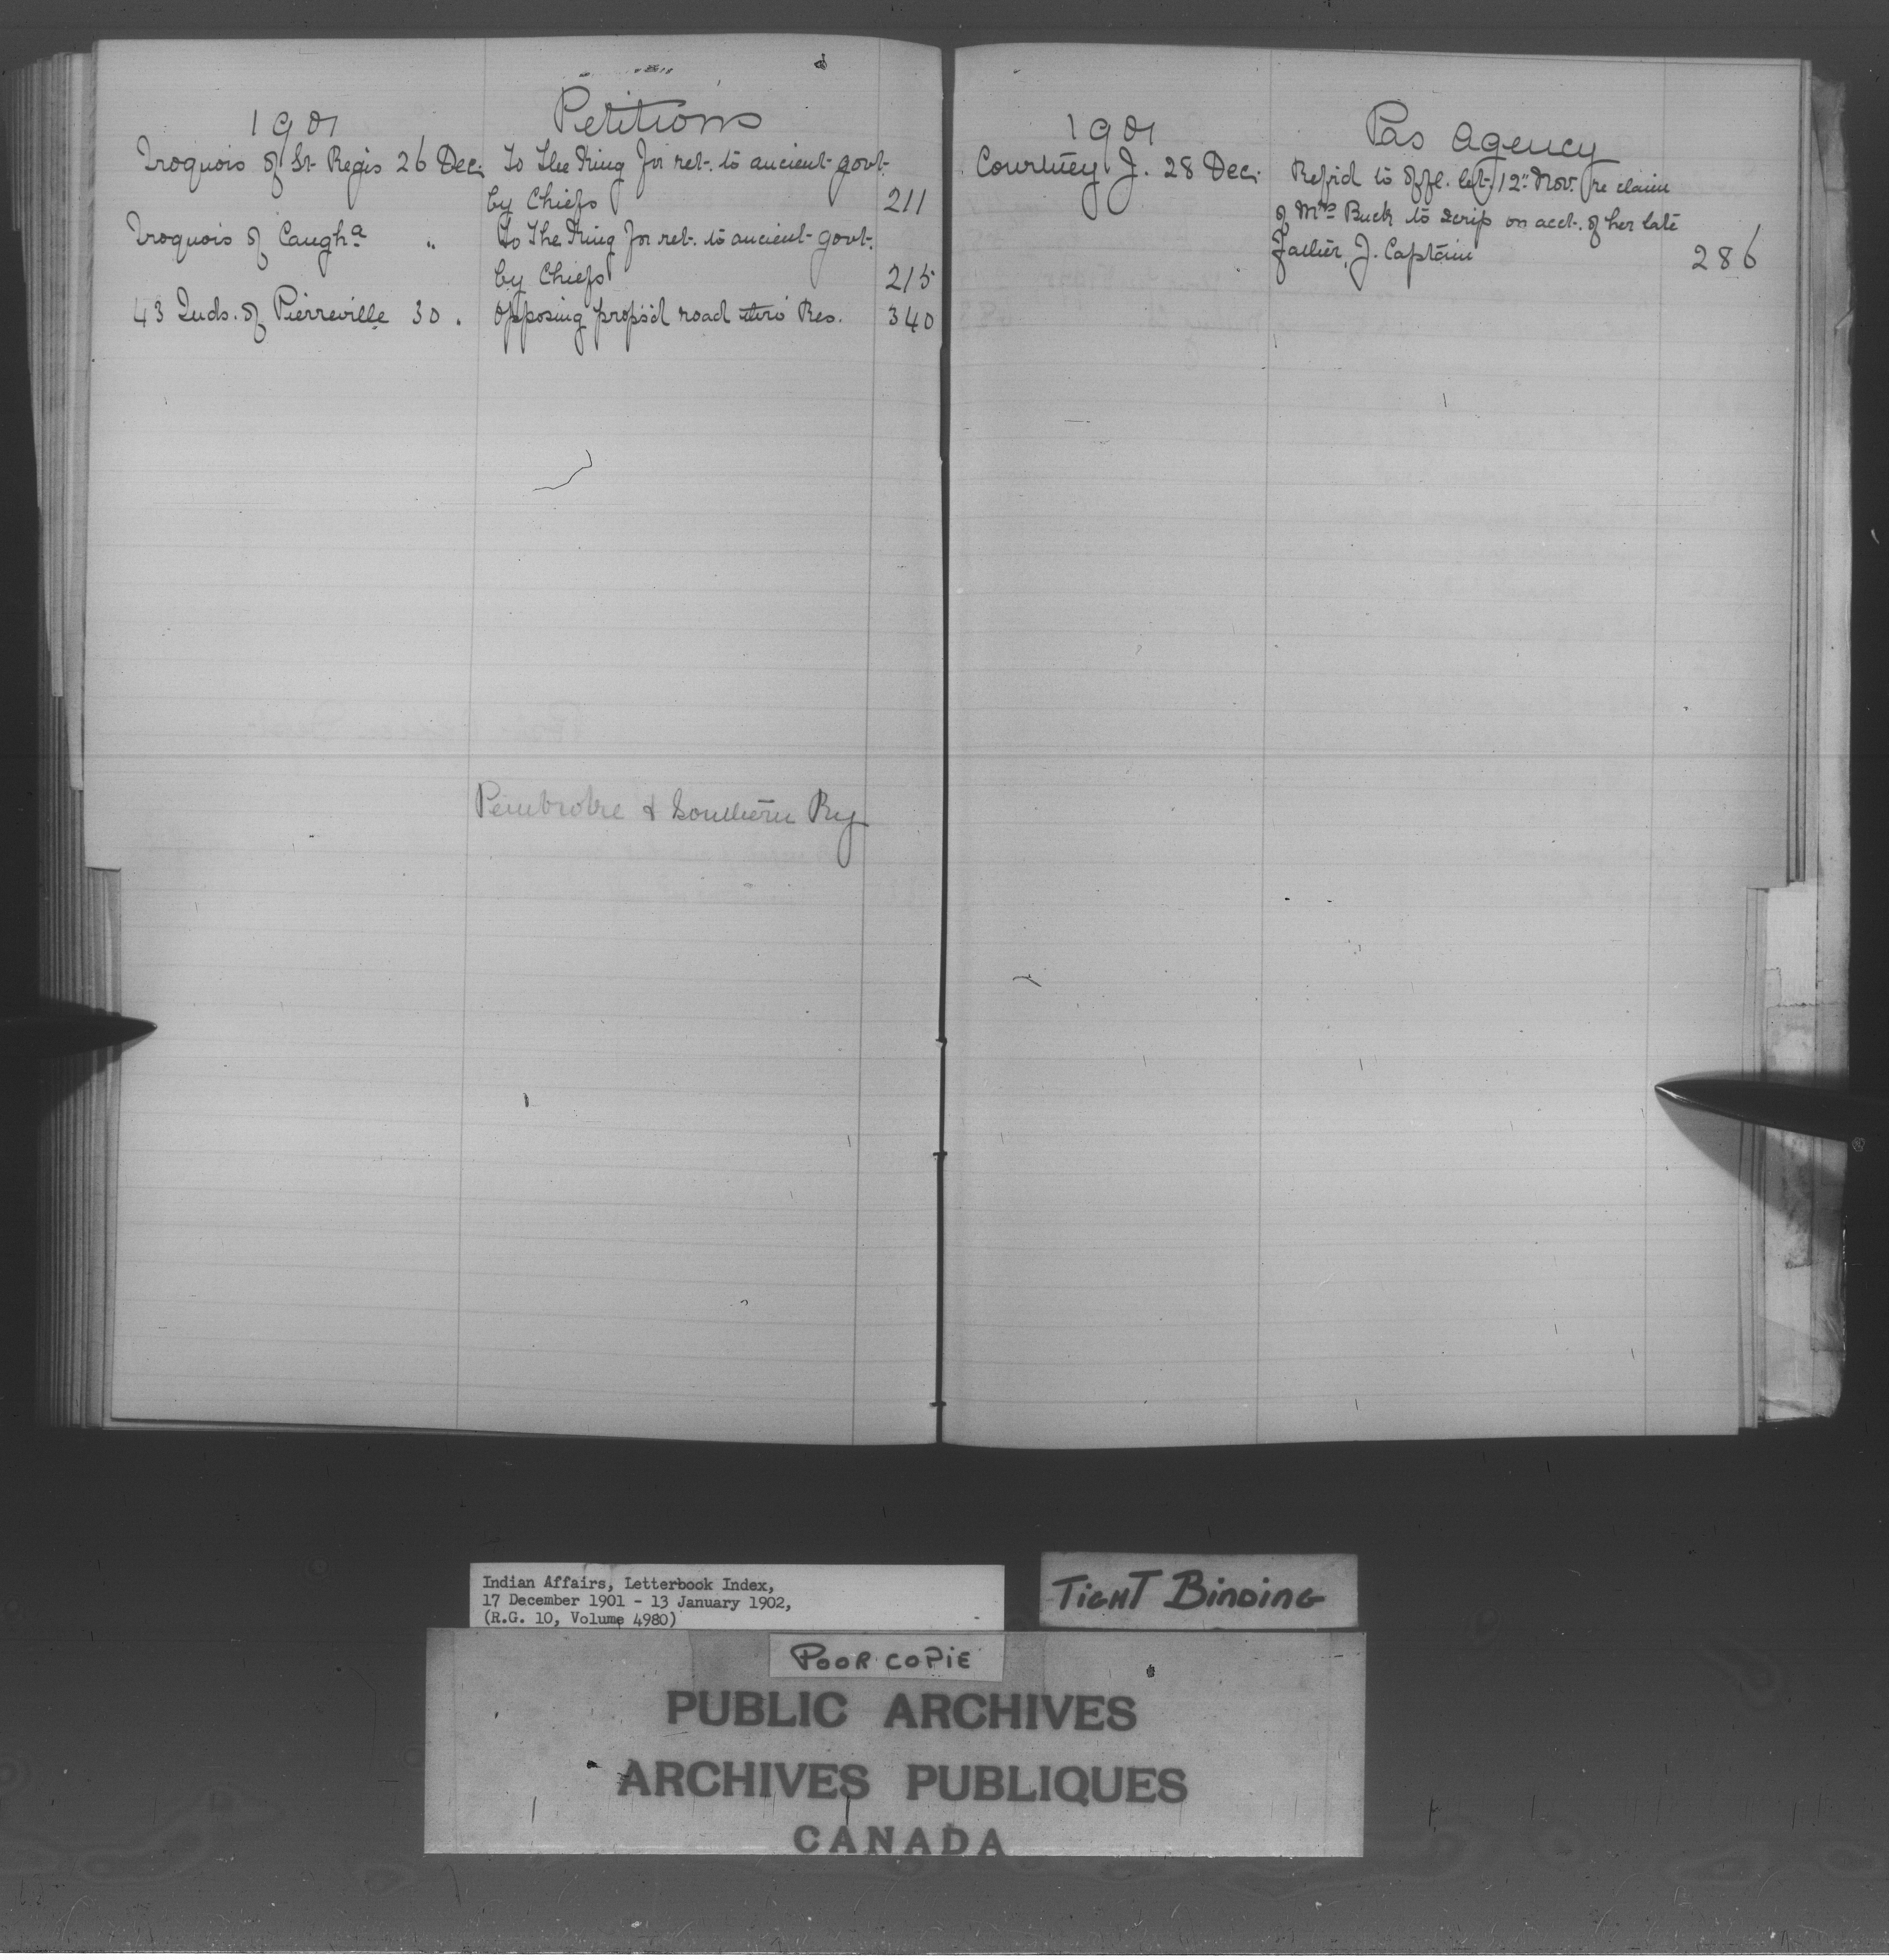 1901
Petitions
Iroquois of St. Regis 26 Dec. To The King for ret. to ancient govt.
by Chiefs 211
Iroquois of Caugha " To The King for ret. to ancient govt.
by Chiefs 215
43 Inds. of Pierreville 30 " Opposing propsd road thro' Res. 340
Pembroke & Southern Ry
1901
Pas Agency
Courtney J. 28 Dec. Refrd to offl. let. 12" Nov. re claim
of Mrs Buck to scrip on acct. of her late
father, J. Captain 286
Indian Affairs, Letterbook Index,
17 December 1901 - 13 January 1902,
(R.G. 10, Volume 4980)
TIGHT BINDING
POOR COPIE
PUBLIC ARCHIVES
ARCHIVES PUBLIQUES
CANADA